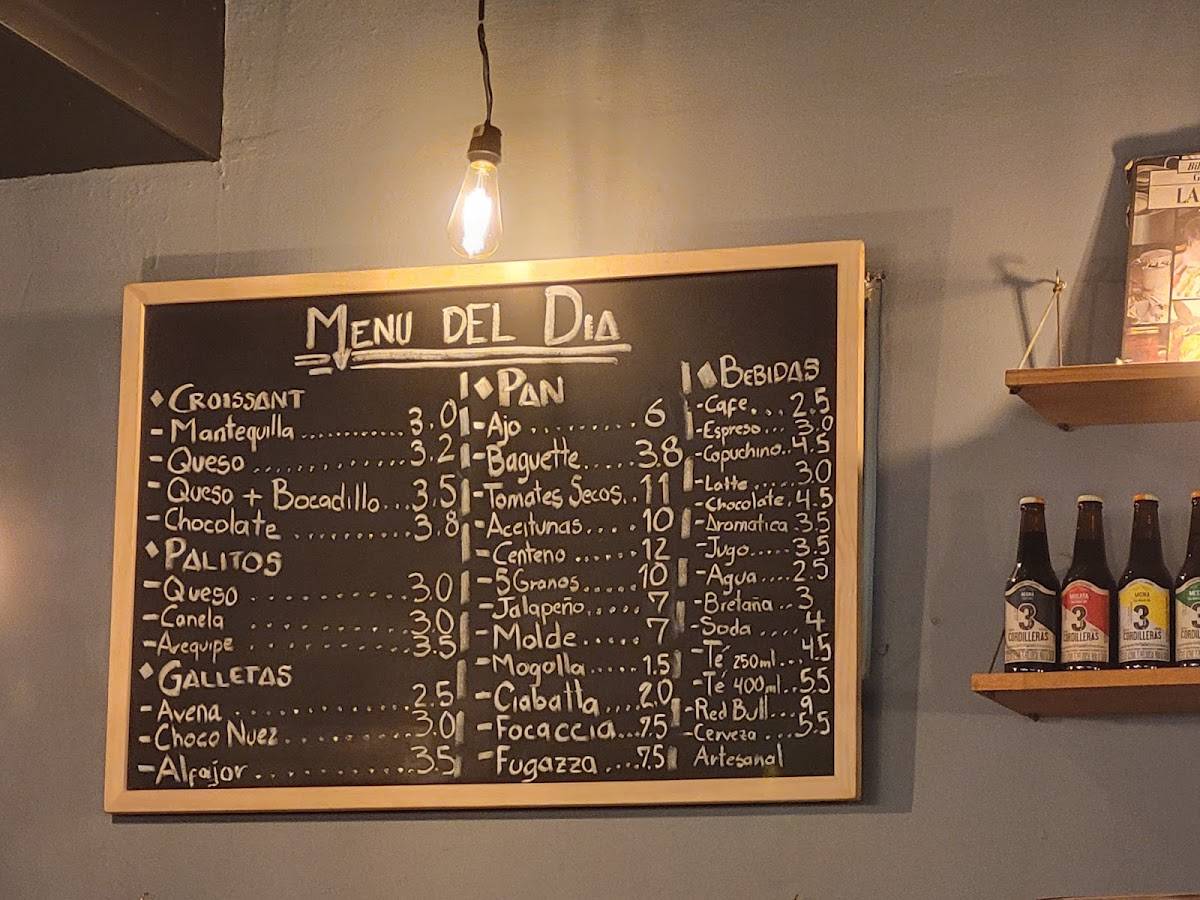 MENU DEL DIA
◆ CROISSANT
- Mantequilla ........... 3.0
- Queso ............ 3.2
- Queso + Bocadillo... 3.5
- Chocolate ......... 3.8
◆ PALITOS
- Queso ........... 3.0
- Canela ........... 3.0
- Arequipe ........... 3.5
◆ GALLETAS
- Avena ............ 2.5
- Choco Nuez ......... 3.0
- Alfajor ........... 3.5
◆ PAN
- Ajo ......... 6
- Baguette..... 3.8
- Tomates Secos.. 11
- Aceitunas.... 10
- Centeno ...... 12
- 5 Granos.... 10
- Jalapeño..... 7
- Molde ..... 7
- Mogolla..... 1.5
- Ciabatta.... 2.0
- Focaccia... 7.5
- Fugazza .... 7.5
◆ BEBIDAS
- Cafe... 2.5
- Espreso... 3.0
- Capuchino.. 4.5
- Latte..... 3.0
- Chocolate. 4.5
- Aromatica 3.5
- Jugo..... 3.5
- Agua.... 2.5
- Bretaña .. 3
- Soda .... 4
- Té 250ml... 4.5
- Té 400ml.. 5.5
- Red Bull... 9
- Cerveza ... 5.5
Artesanal
LA
NEGRA
3
CORDILLERAS
MULATA
3
CORDILLERAS
MONA
3
CORDILLERAS